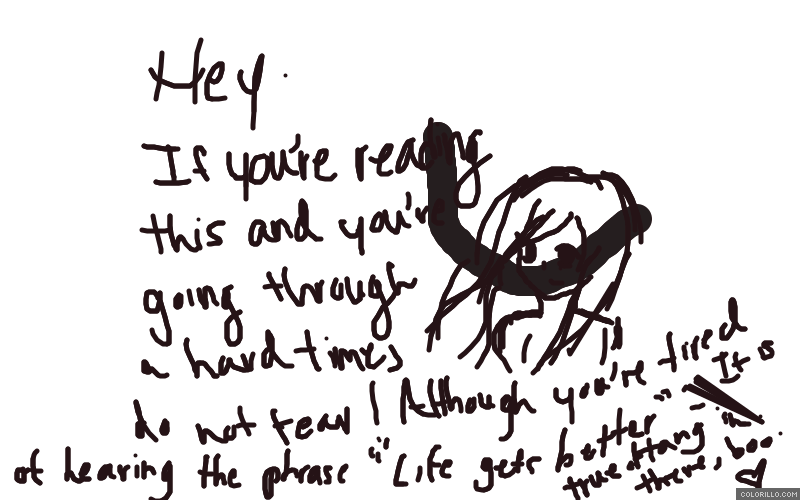 Hey.
If you're reading
this and you're
going through
a hard times
do not fear! Although you're tired
of hearing the phrase "Life gets better" - It is
true. Hang in
there, boo.
COLORILLO.COM